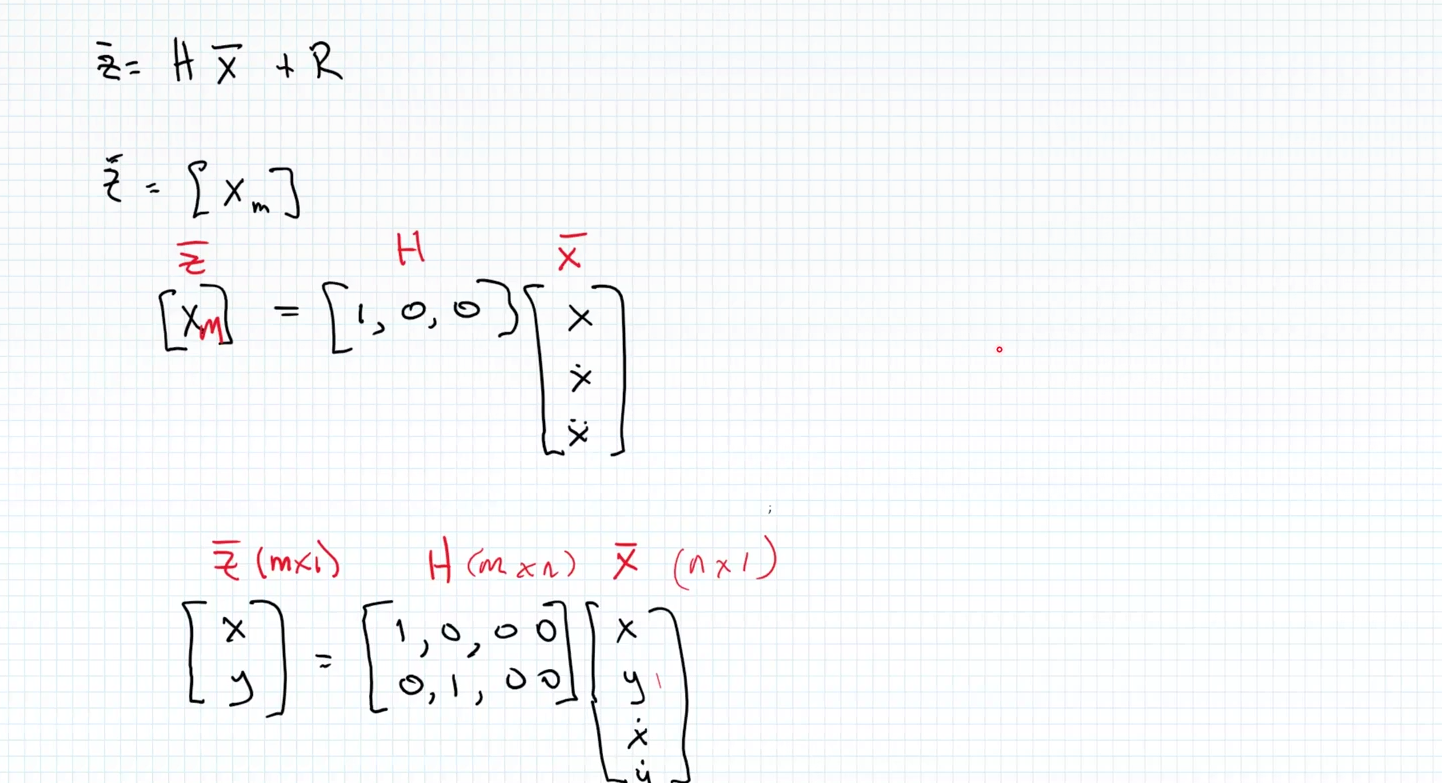 z̄ = H x̄ + R
z̄ = [ x_m ]
z̄ H x̄
[x_m] = [1, 0, 0] [ x
ẋ
ẍ ]
z̄ (m×1) H (m×n) x̄ (n×1)
[ x = [ 1, 0, 0 0 [ x
y ] 0, 1, 0 0 ] y
ẋ
ẏ ]